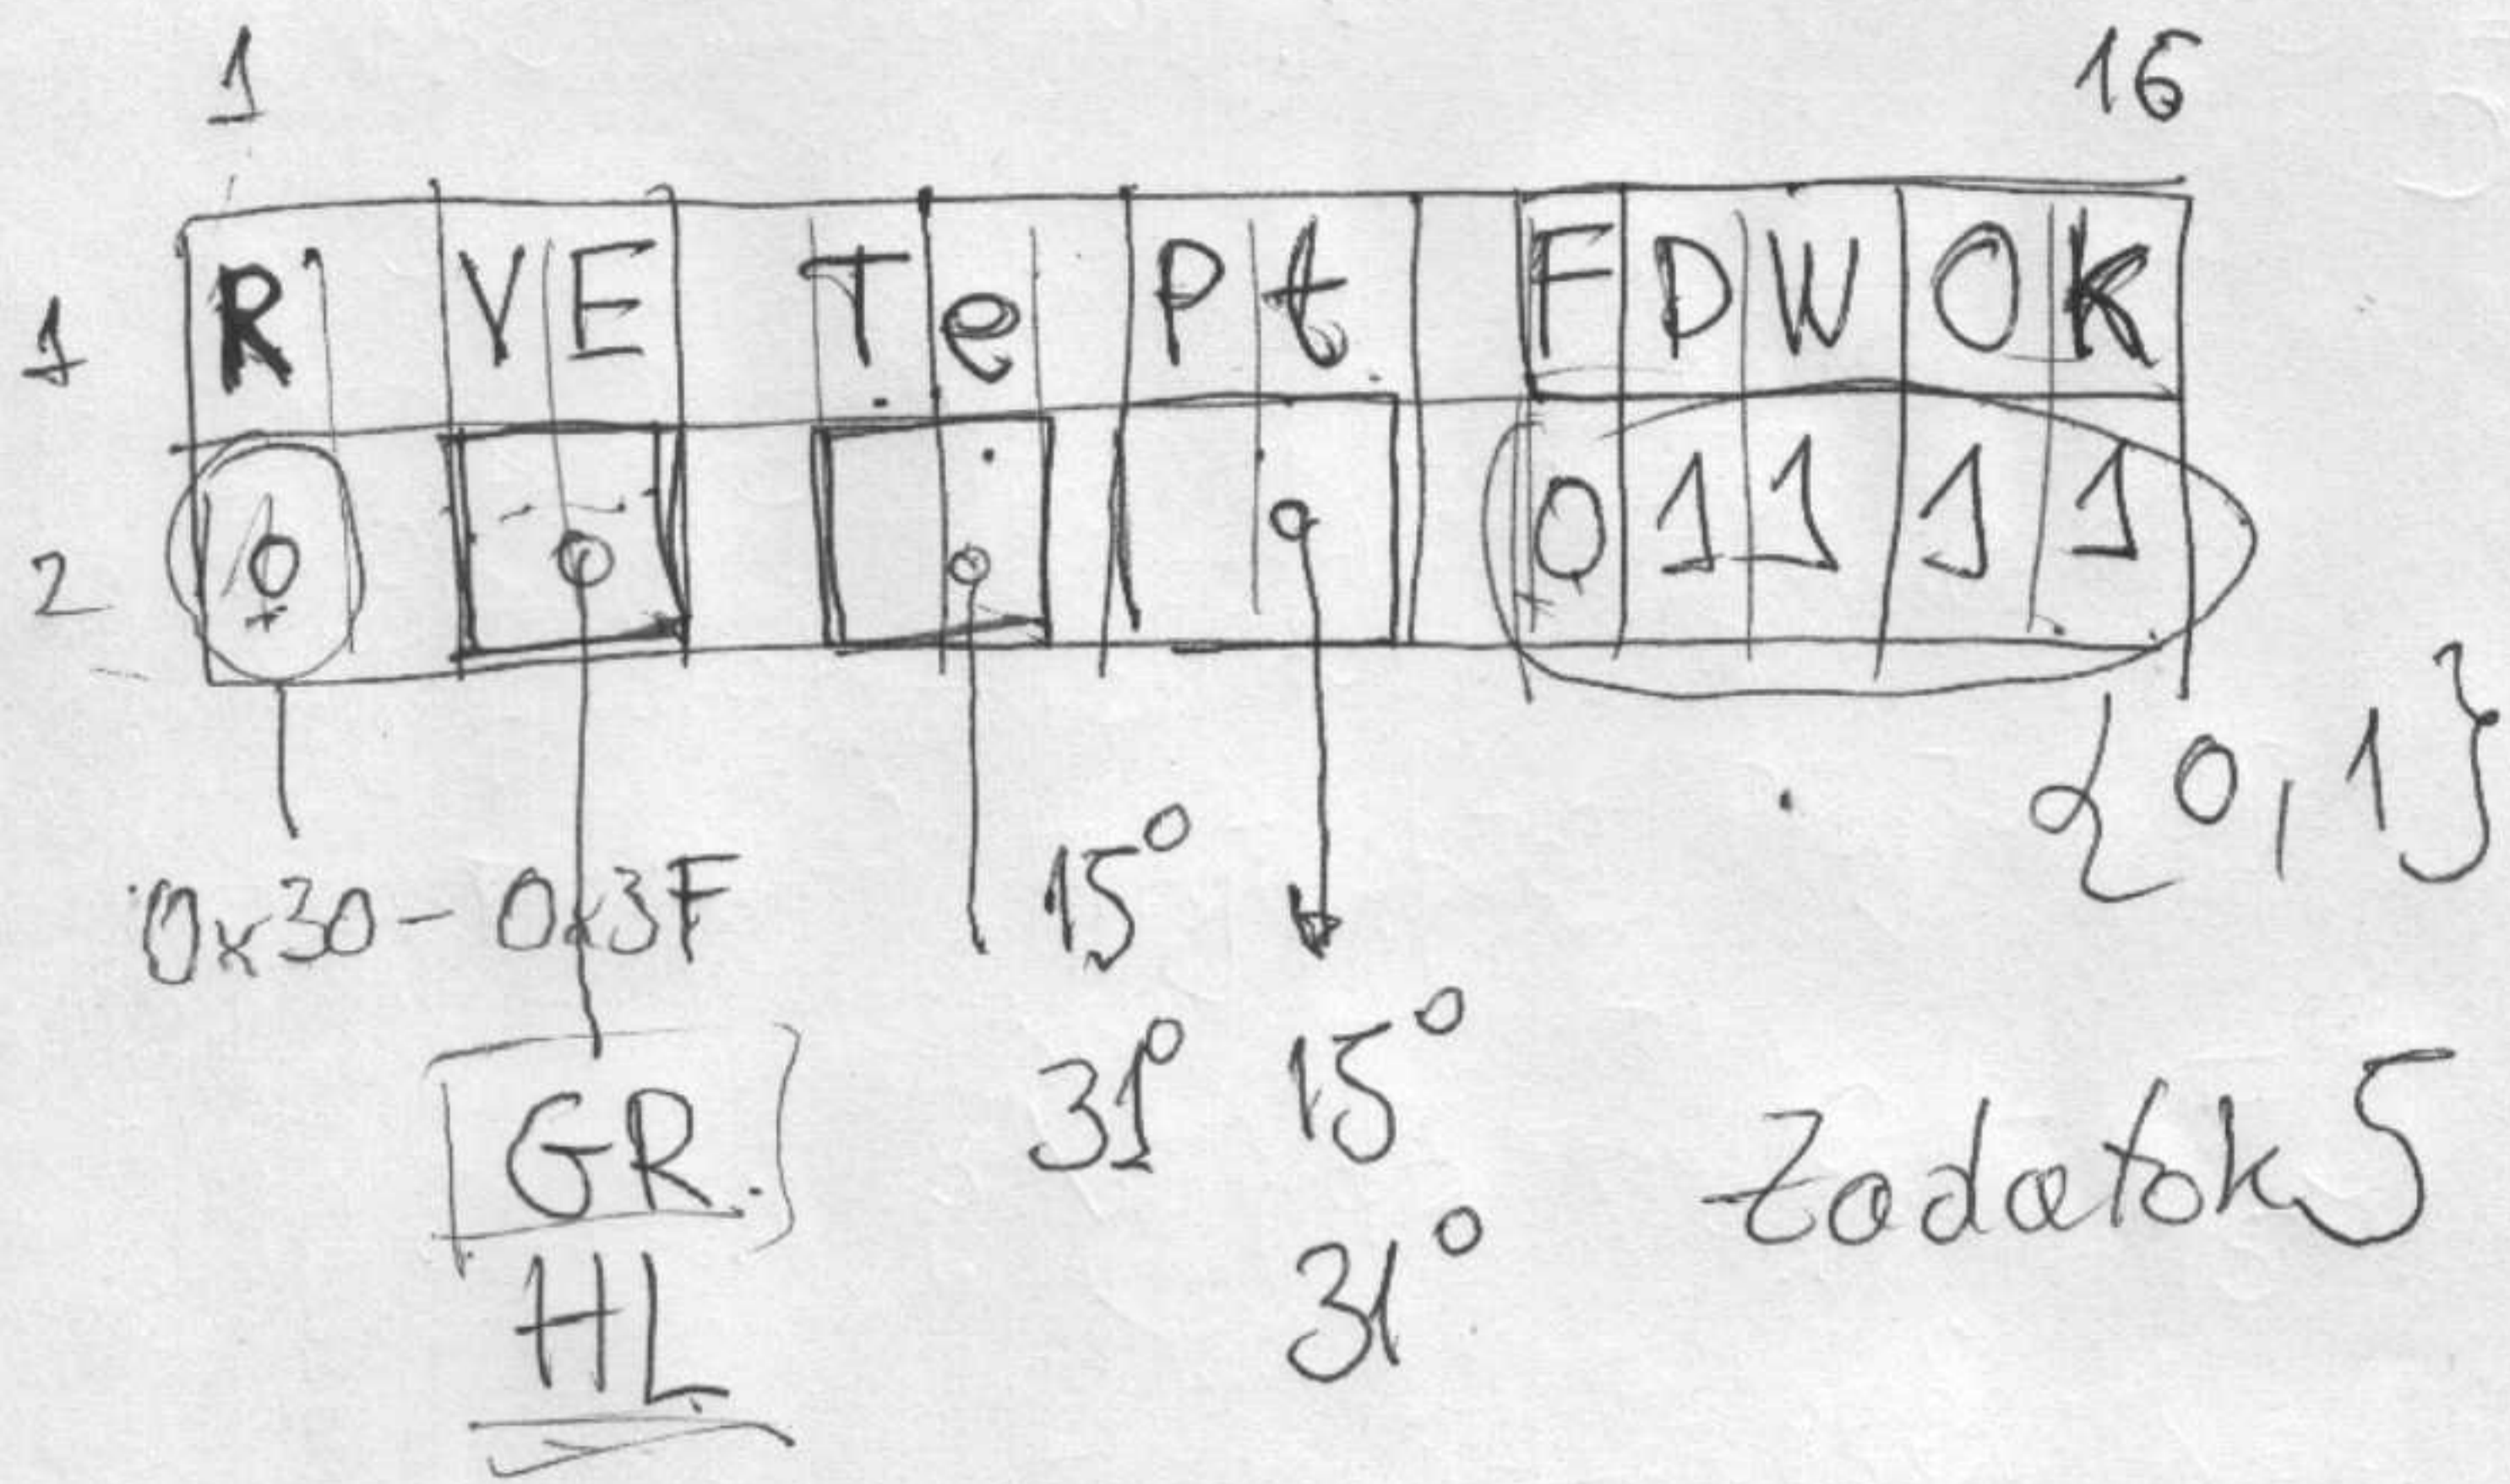 1 16
1 R VE Te Pt F D W O K
2 0 0 1 1 1 1
{0,1}
0x30 - 0x3F 15°
31° 15°
GR. Zadatak 5
31°
HL